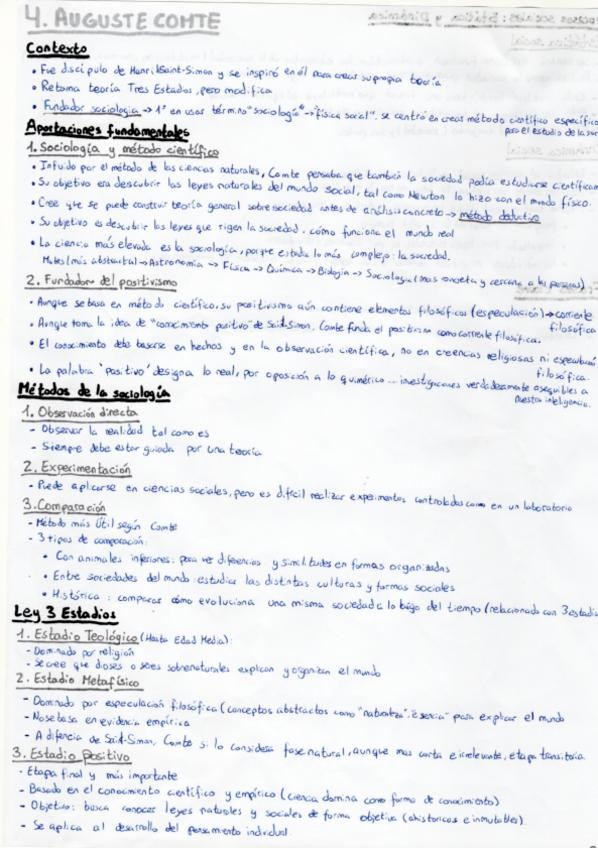 4. AUGUSTE COMTE
Contexto
• Fue discípulo de Henri Saint-Simon y se inspiró en él para crear su propia teoría
• Retoma teoría Tres Estados, pero modifica
• Fundador sociología → 1º en usar término "sociología" → "física social". se centro en crear método científico específico
para el estudio de la
Aportaciones fundamentales
1. Sociología y método científico
• Influido por el método de las ciencias naturales, Comte pensaba que también la sociedad podía estudiarse
• Su objetivo era descubrir las leyes naturales del mundo social, tal como Newton lo hizo con el mundo físico.
• Cree que se puede construir teoría general sobre sociedad antes de análisis concreto → método deductivo
• Su objetivo es descubrir las leyes que rigen la sociedad. cómo funciona el mundo real
• La ciencia más elevada es la sociología, porque estudia lo más complejo: la sociedad.
Mates (más abstracta) → Astronomía → Física → Química → Biología → Sociología (mas concreta y cercana a las personas)
2. Fundador del positivismo
• Aunque se basa en método científico, su positivismo aún contiene elementos filosóficos (especulación) → corriente
filosófica
• Aunque toma la idea de "conocimiento positivo" de Saint-Simon, Comte funda el positivismo como corriente filosófica.
• El conocimiento debe basarse en hechos y en la observación científica, no en creencias religiosas ni especulación
filosófica.
• La palabra 'positivo' designa lo real, por oposición a lo quimérico... investigaciones verdaderamente asequibles a
nuestra inteligencia.
Métodos de la sociología
1. Observación directa
- Observar la realidad tal como es
- Siempre debe estar guiada por una teoría
2. Experimentación
- Puede aplicarse en ciencias sociales, pero es difícil realizar experimentos controlados como en un laboratorio
3. Comparación
- Método más útil según Comte
- 3 tipos de comparación:
• Con animales inferiores: para ver diferencias y similitudes en formas organizadas
• Entre sociedades del mundo: estudiar las distintas culturas y formas sociales
• Histórica: comparar cómo evoluciona una misma sociedad a lo largo del tiempo (relacionado con 3
Ley 3 Estadios
1. Estadio Teológico (Hasta Edad Media):
- Dominado por religión
- Se cree que dioses o seres sobrenaturales explican y organizan el mundo
2. Estadio Metafísico
- Dominado por especulación filosófica (conceptos abstractos como "naturaleza", "esencia" para explicar el mundo
- No se basa en evidencia empírica
- A diferencia de Saint-Simon, Comte si lo considera fase natural, aunque mas corta e irrelevante, etapa transitoria.
3. Estadio Positivo
- Etapa final y más importante
- Basado en el conocimiento científico y empírico (ciencia domina como forma de conocimiento)
- Objetivo: busca conocer leyes naturales y sociales de forma objetiva (ahistóricas e inmutables).
- Se aplica al desarrollo del pensamiento individual.